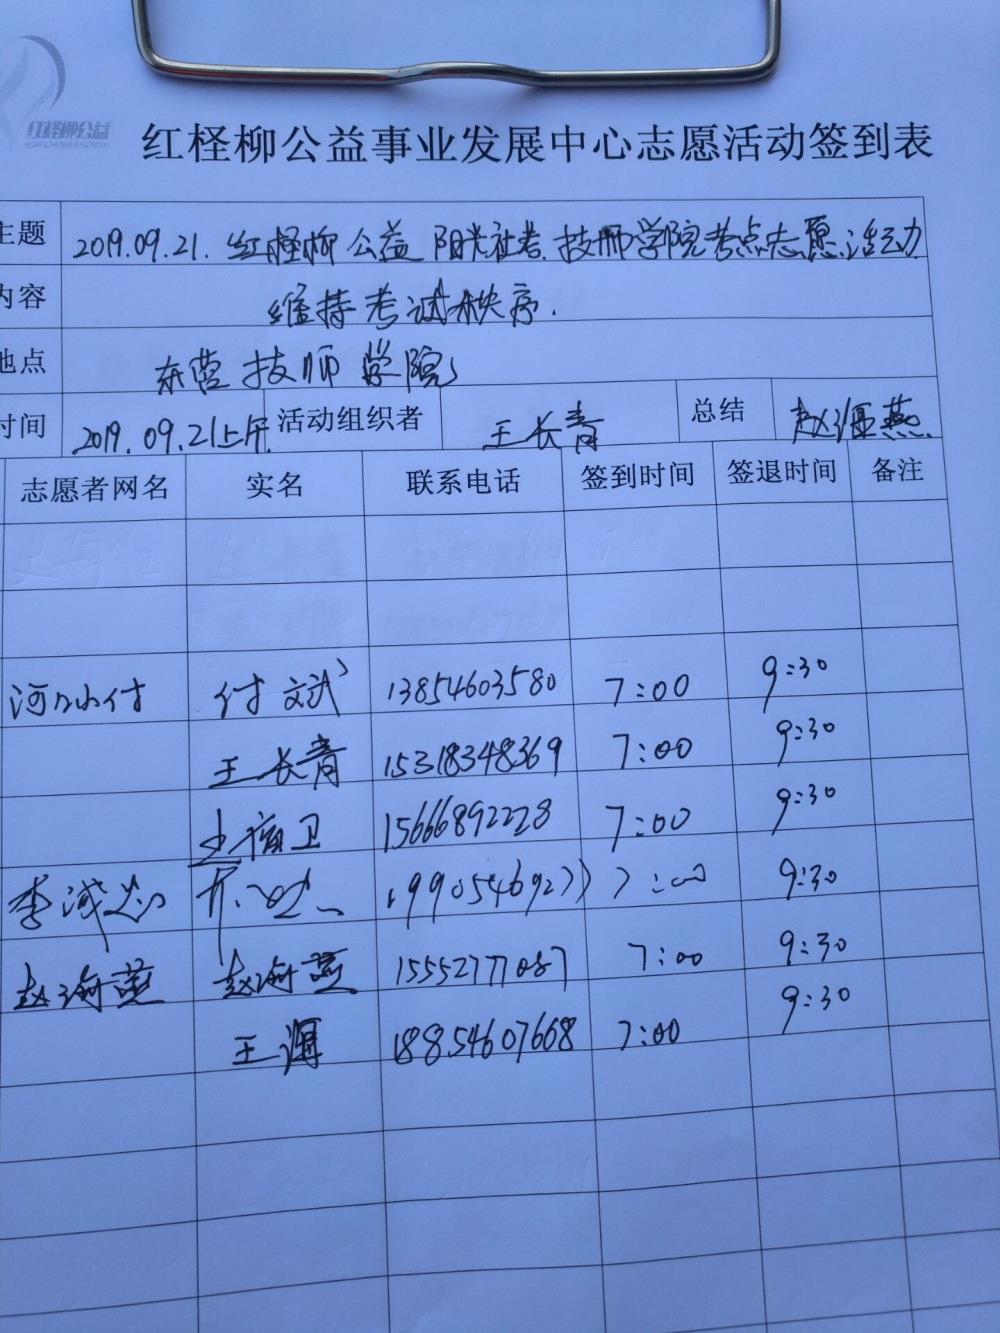 红柽柳公益
红柽柳公益事业发展中心志愿活动签到表
主题 2019.09.21. 红柽柳公益 阳光社考.技师学院考点志愿活动
内容 维持考试秩序.
地点 东营技师学院
时间 2019.09.21上午 活动组织者 王长青 总结 赵海燕
志愿者网名 实名 联系电话 签到时间 签退时间 备注
河口小付 付文武 13854603580 7:00 9:30
王长青 15318348369 7:00 9:30
卫 15666892228 7:00 9:30
李诚志 19905469277 7:00 9:30
赵海燕 赵海燕 15552777087 7:00 9:30
王 18854607668 7:00 9:30